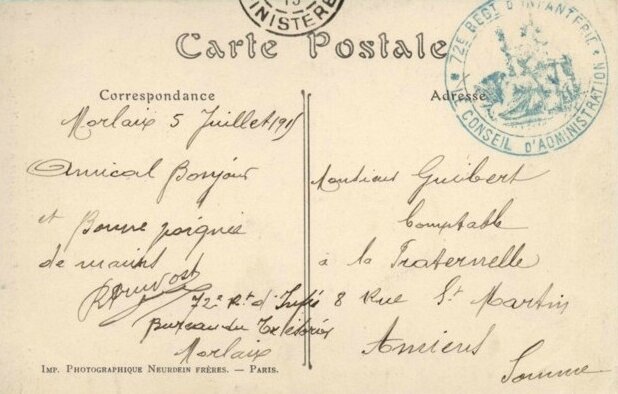 15
MINISTÈRE
Carte Postale
72E REGT D'INFANTERIE
LE CONSEIL D'ADMINISTRATION
Correspondance
Adresse
Morlaix 5 Juillet 1915
Amical Bonjour
et Bonne poignée
de mains
72e Rt d'Infie
Bureau du Trésorier
Morlaix
Monsieur Guibert
Comptable
à la Fraternelle
8 Rue St Martin
Amiens
Somme
IMP. PHOTOGRAPHIQUE NEURDEIN FRÈRES. — PARIS.